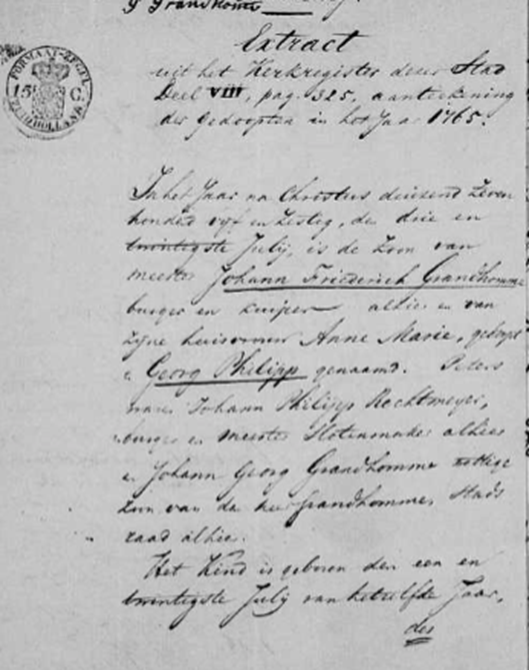 G Grandhomme
Extract
uit het Kerkregister dezer Stad
Deel VIII, pag. 325, aanteekening
der gedoopten in het Jaar 1765.
FORMAAT-ZEGEL
15 C.
ZUIDHOLLAND
In het Jaar na Christus duizend zeven
honderd vyf en zestig, de drie en
twintigste July, is de zoon van
meester Johann Friederich Grandhomme
burger en kuiper alhier en van
zyne huisvrouw Anne Marie, gedoopt
en Georg Philipp genaamd. Peters
waren Johann Philipp Rechtmeyer,
burger en meester Slotenmaker alhier
en Johann Georg Grandhomme
zoon van den heer Grandhomme, Stads
raad alhier.
Het Kind is geboren den een en
twintigste July van hetzelfde Jaar,
des